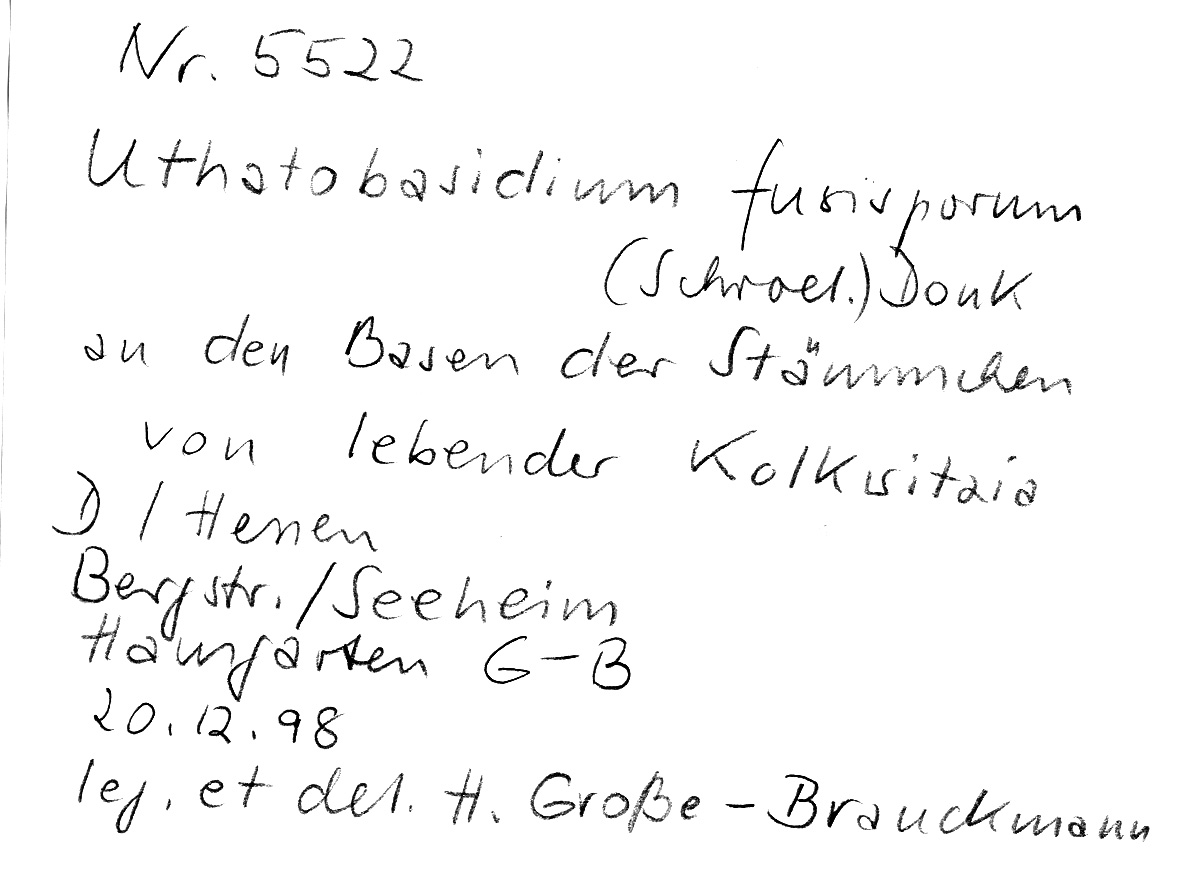 Nr. 5522
Uthatobasidium fusisporum
(Schroet.) Donk
an den Basen der Stämmchen
von lebender Kolkwitzia
D / Hessen
Bergstr. / Seeheim
Hausgarten G-B
20.12.98
leg. et det. H. Große-Brauckmann